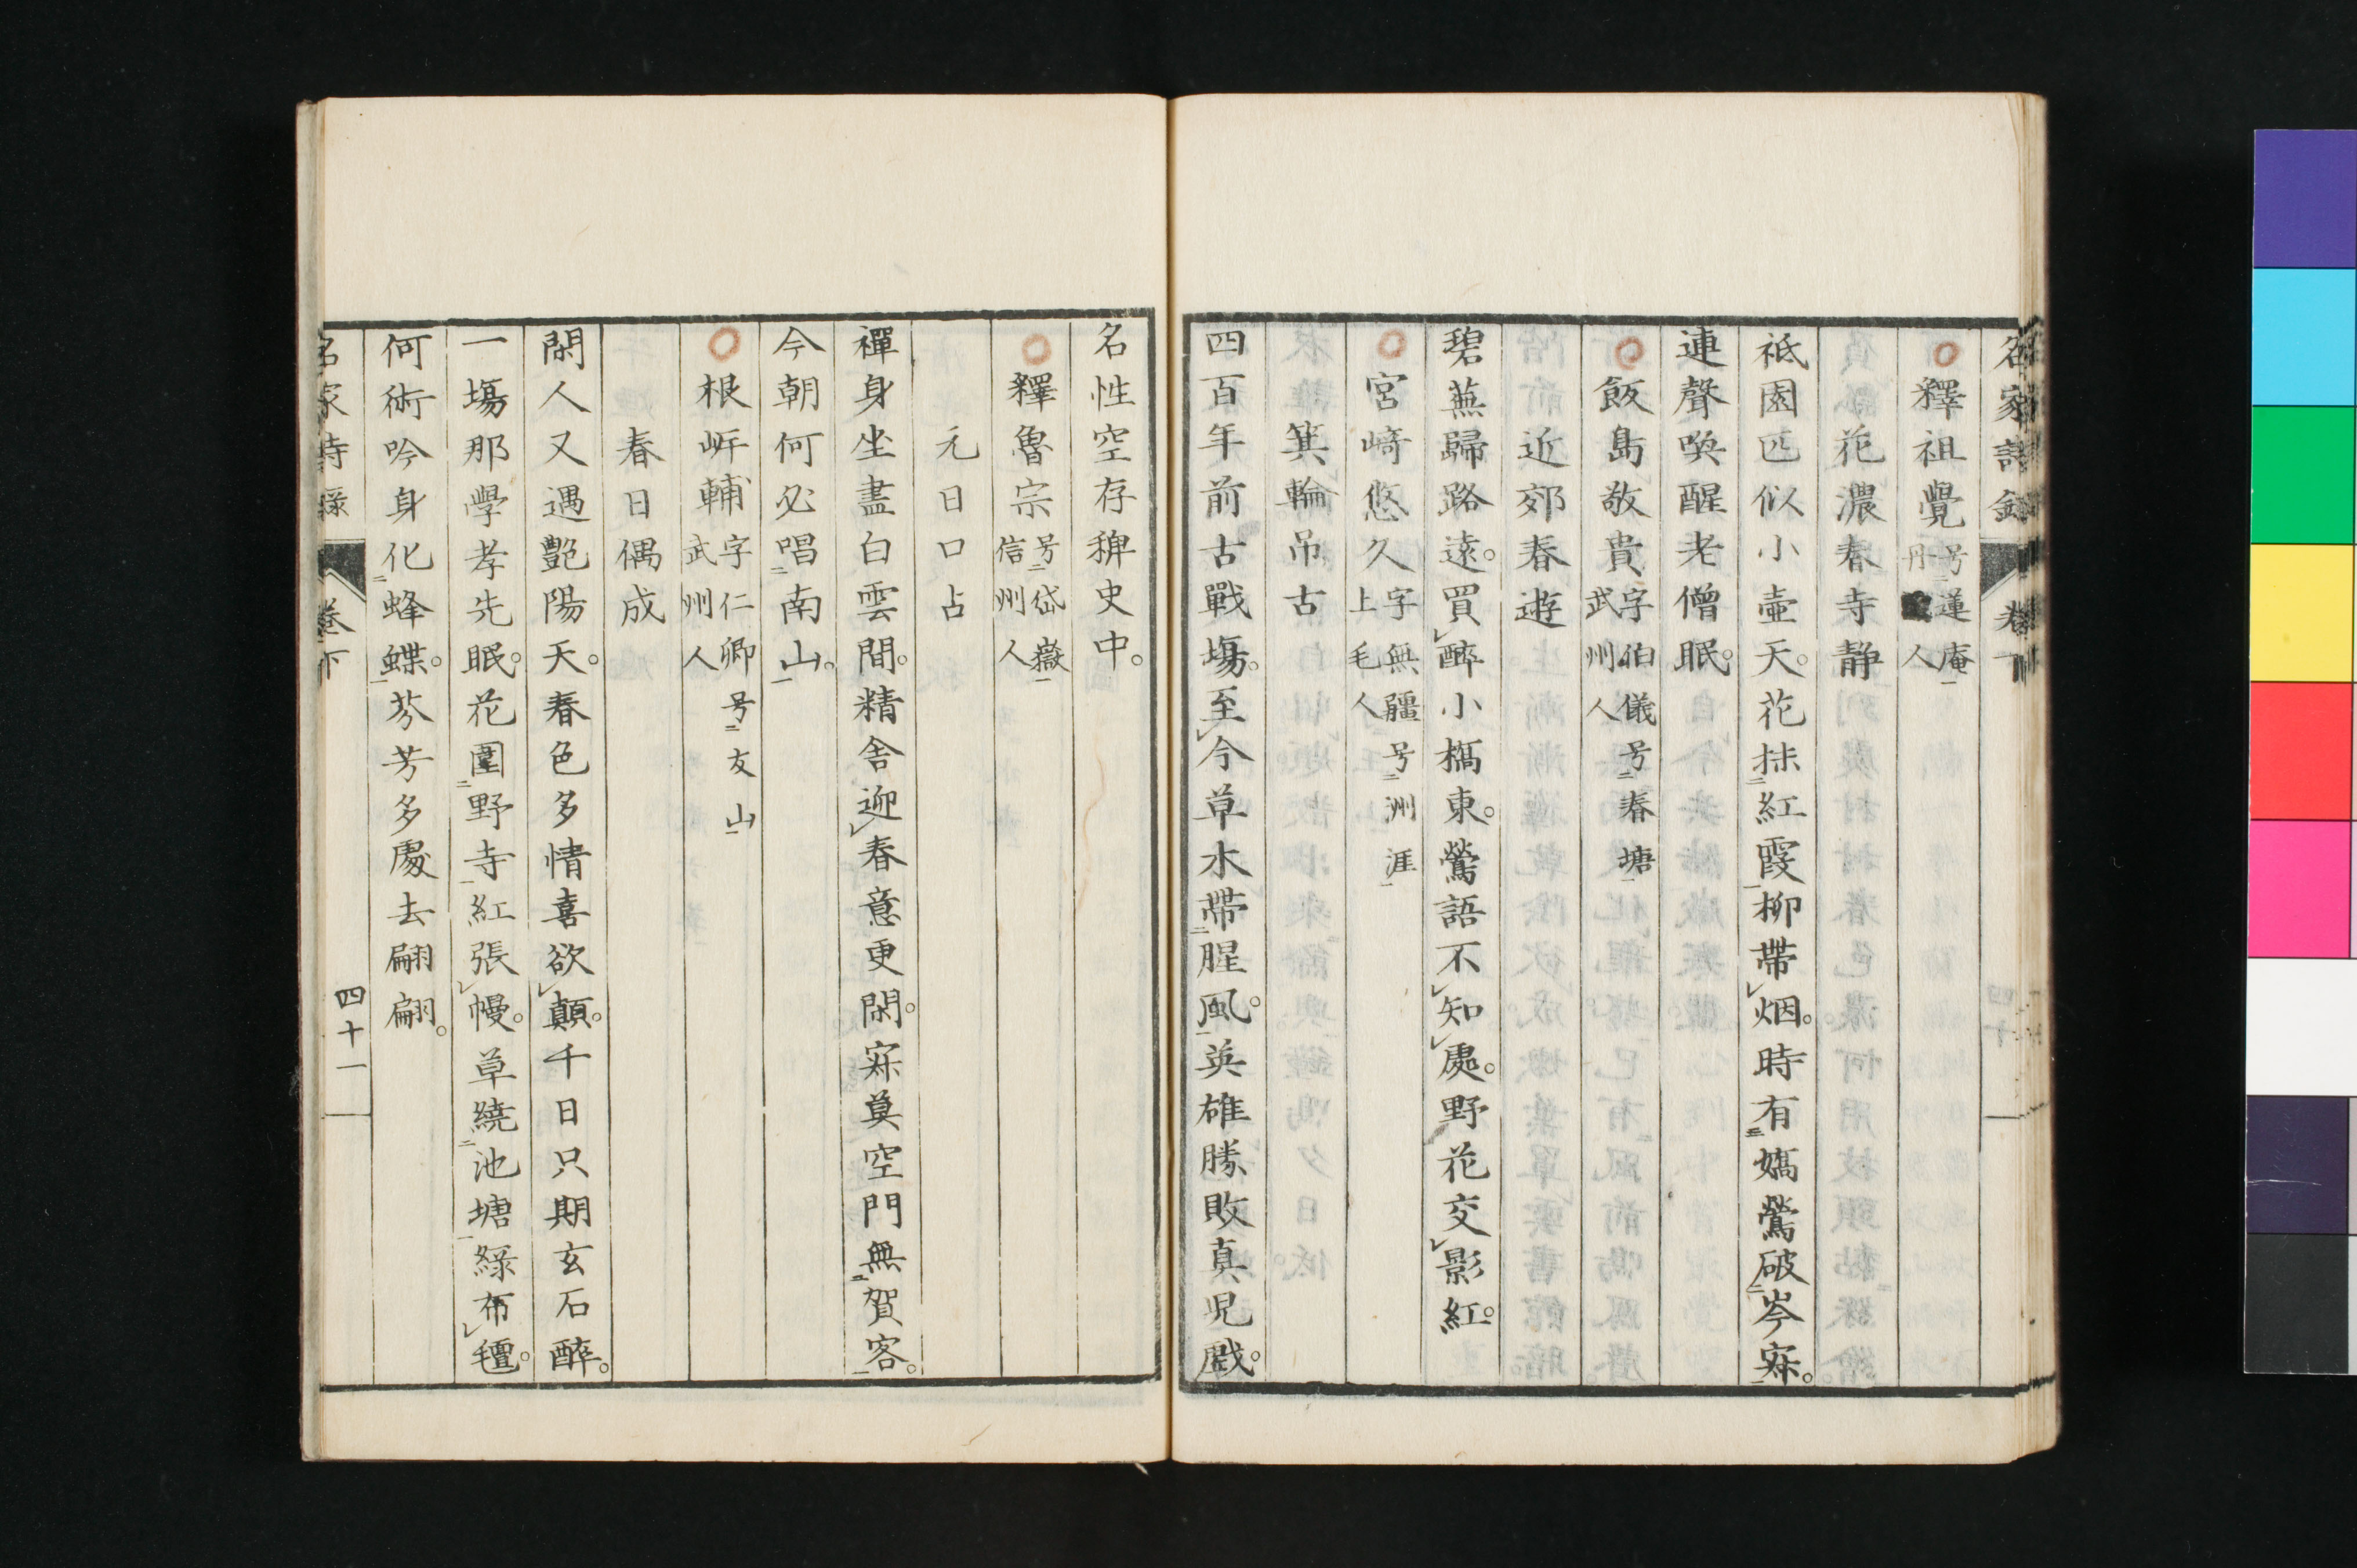 名家詩録 卷下
釋祖覺 号蓮庵 丹 人
花濃春寺靜
祗園匹似小壷天。花抹紅霞柳帶烟。時有嬌鶯破岑寂。
連聲喚醒老僧眠。
飯島敬貴 字伯儀号春塘 武州人
近郊春遊
碧蕪歸路遠。買醉小槗東。鶯語不知處。野花交影紅。
宮﨑悠久 字無疆号洲涯 上毛人
箕輪吊古
四百年前古戰塲。至今草木帶腥風。英雄勝敗真児戯。
名性空存稗史中。
釋魯宗 号岱嶽 信州人
元日口占
禪身坐盡白雲間。精舎迎春意更閑。寂莫空門無賀客。
今朝何必唱南山。
根岍輔 字仁卿号友山 武州人
春日偶成
閑人又遇艶陽天。春色多情喜欲顛。千日只期玄石醉。
一塲那學孝先眠。花圍野寺紅張幔。草繞池塘綠布氊。
何術吟身化蜂蝶。芬芳多處去翩翩。
名家詩録 卷下 四十一